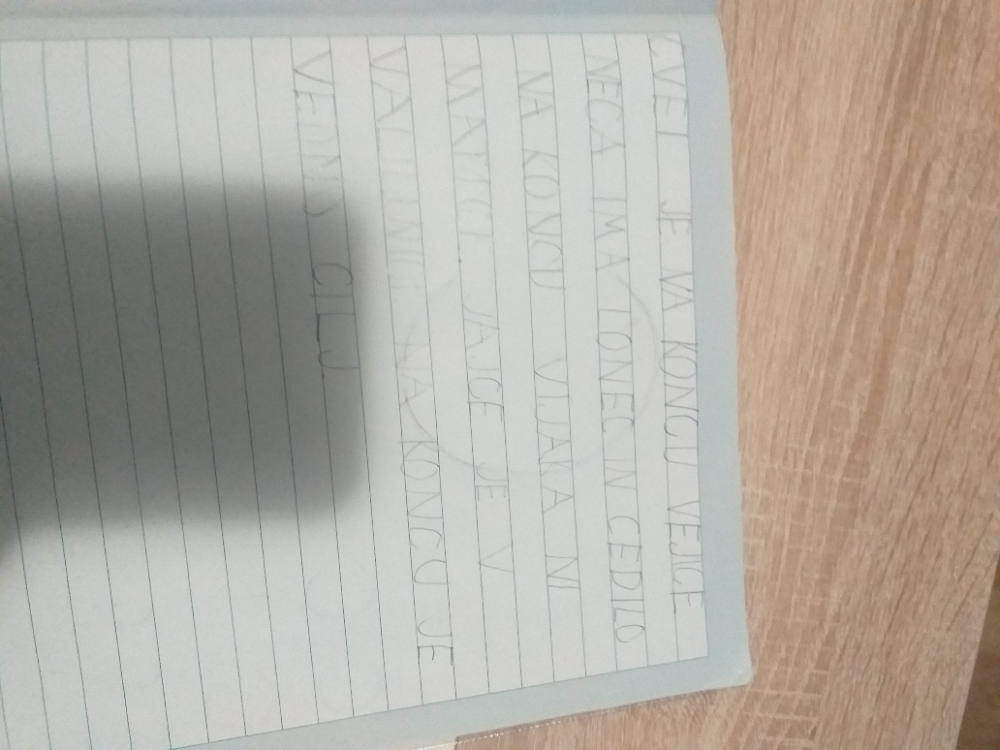 CVET JE NA KONCU VEJICE
NEGA IMA LONEC IN CEDILO
NA KONCU VIJAKA NI
MATICE JAJCE JE V
NA KONCU JE
VEDNO CILJ